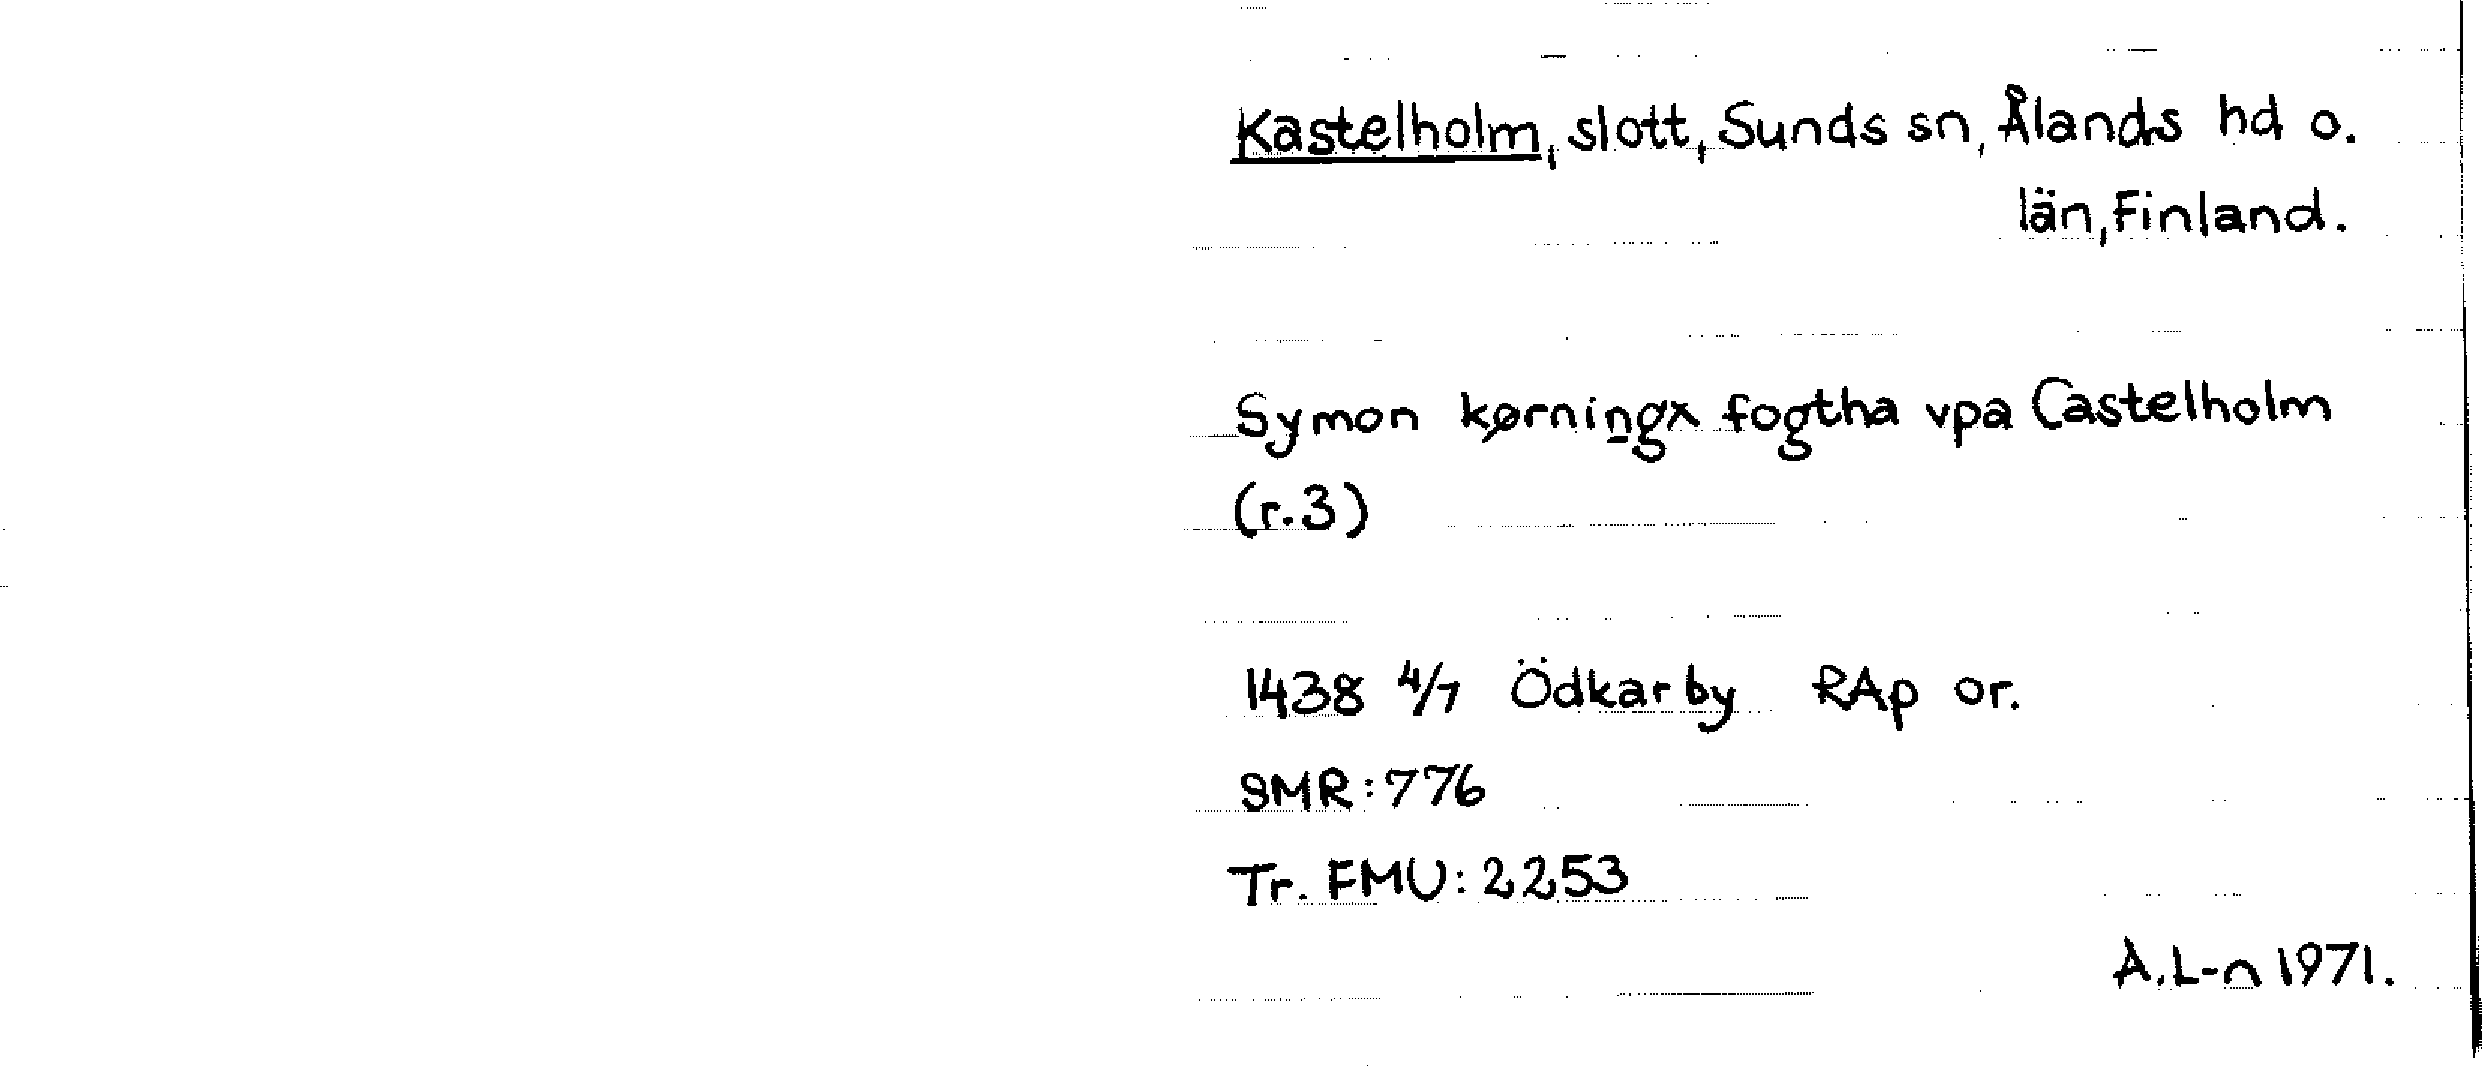 Kastelholm, slott, Sunds sn, Ålands hd o.
län, Finland.
Symon kørningx fogtha vpa Castelholm
(r.3)
1438 4/7 Ödkarby RAp or.
SMR: 776
Tr. FMU: 2253
A.L-n 1971.